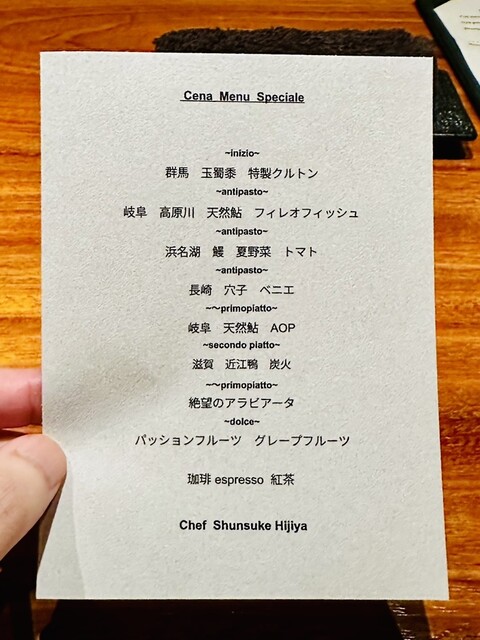 Cena Menu Speciale
~inizio~
群馬 玉蜀黍 特製クルトン
~antipasto~
岐阜 高原川 天然鮎 フィレオフィッシュ
~antipasto~
浜名湖 鰻 夏野菜 トマト
~antipasto~
長崎 穴子 ベニエ
~〜primopiatto~
岐阜 天然鮎 AOP
~secondo piatto~
滋賀 近江鴨 炭火
~〜primopiatto~
絶望のアラビアータ
~dolce~
パッションフルーツ グレープフルーツ
珈琲 espresso 紅茶
Chef Shunsuke Hijiya